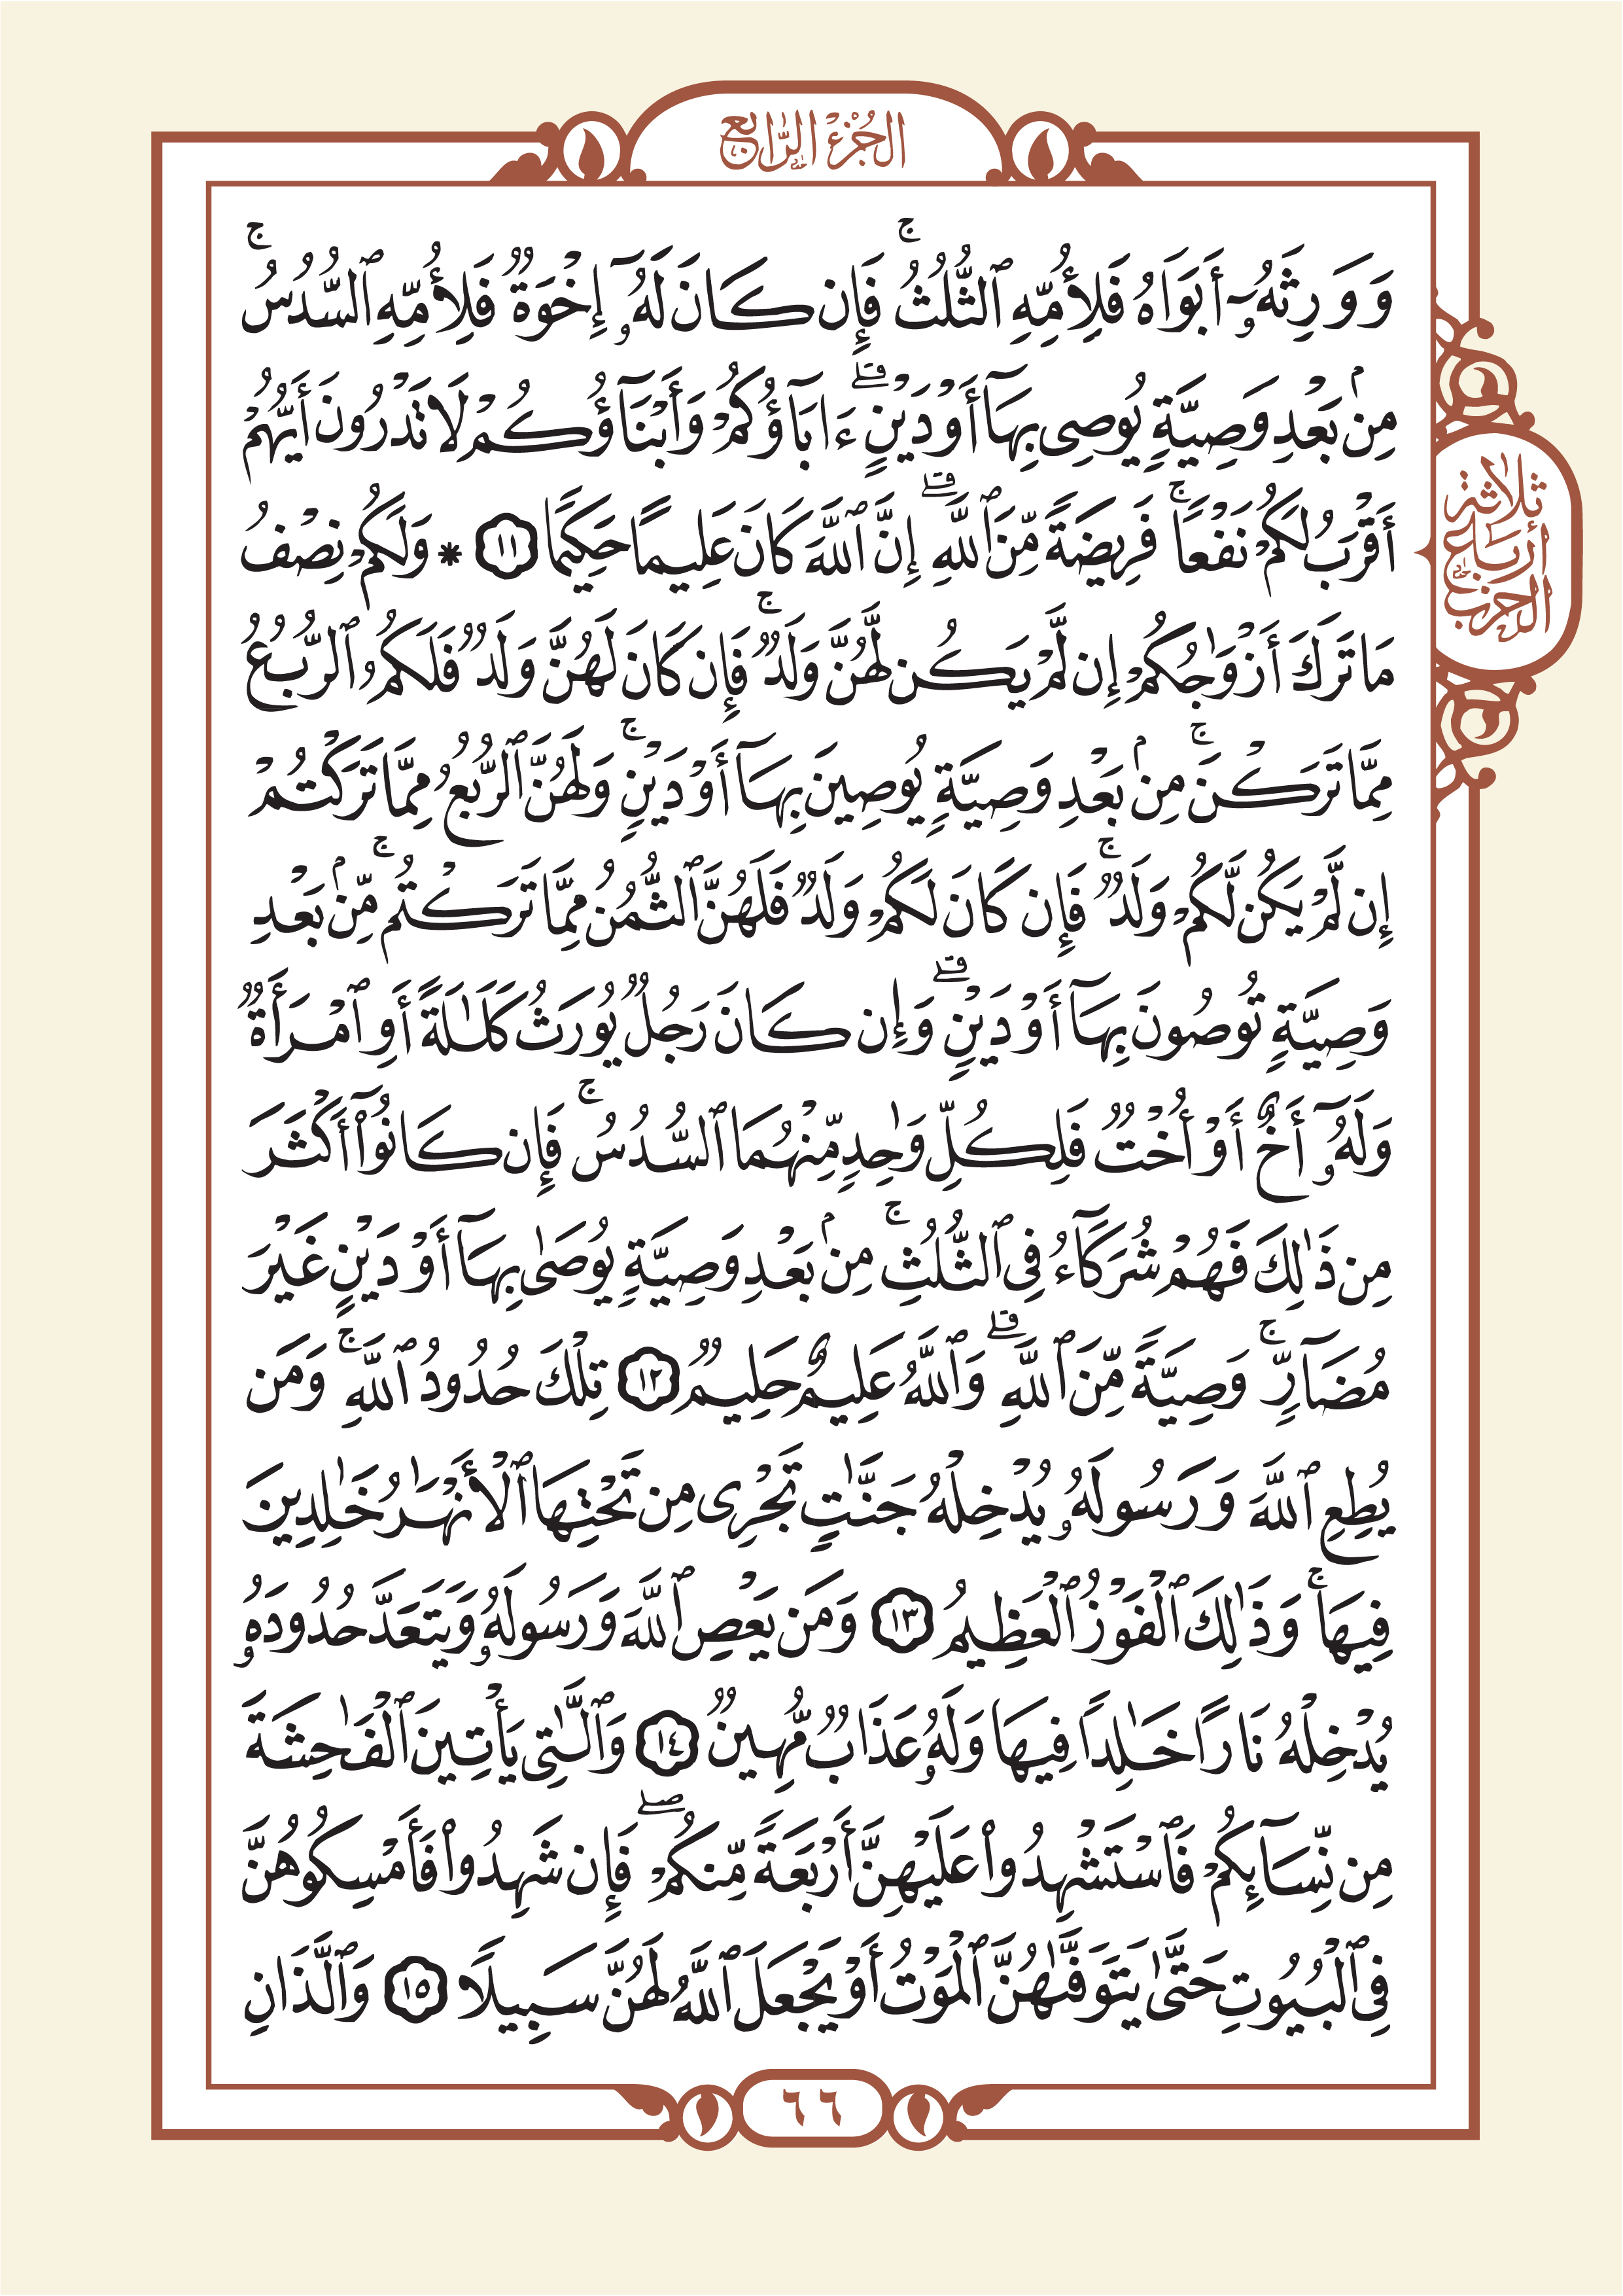 الجزء الرابع
وَوَرِثَهُۥٓ أَبَوَاهُ فَلِأُمِّهِ ٱلثُّلُثُۚ فَإِن كَانَ لَهُۥٓ إِخْوَةٌ فَلِأُمِّهِ ٱلسُّدُسُۚ
مِنۢ بَعْدِ وَصِيَّةٍ يُوصِى بِهَآ أَوْ دَيْنٍۗ ءَابَآؤُكُمْ وَأَبْنَآؤُكُمْ لَا تَدْرُونَ أَيُّهُمْ
أَقْرَبُ لَكُمْ نَفْعًاۚ فَرِيضَةً مِّنَ ٱللَّهِۗ إِنَّ ٱللَّهَ كَانَ عَلِيمًا حَكِيمًا ١١ * وَلَكُمْ نِصْفُ
ثلاثة أرباع الحزب
مَا تَرَكَ أَزْوَٰجُكُمْ إِن لَّمْ يَكُن لَّهُنَّ وَلَدٌۚ فَإِن كَانَ لَهُنَّ وَلَدٌ فَلَكُمُ ٱلرُّبُعُ
مِمَّا تَرَكْنَۚ مِنۢ بَعْدِ وَصِيَّةٍ يُوصِينَ بِهَآ أَوْ دَيْنٍۚ وَلَهُنَّ ٱلرُّبُعُ مِمَّا تَرَكْتُمْ
إِن لَّمْ يَكُن لَّكُمْ وَلَدٌۚ فَإِن كَانَ لَكُمْ وَلَدٌ فَلَهُنَّ ٱلثُّمُنُ مِمَّا تَرَكْتُمۚ مِّنۢ بَعْدِ
وَصِيَّةٍ تُوصُونَ بِهَآ أَوْ دَيْنٍۗ وَإِن كَانَ رَجُلٌ يُورَثُ كَلَٰلَةً أَوِ ٱمْرَأَةٌ
وَلَهُۥٓ أَخٌ أَوْ أُخْتٌ فَلِكُلِّ وَٰحِدٍ مِّنْهُمَا ٱلسُّدُسُۚ فَإِن كَانُوٓا۟ أَكْثَرَ
مِن ذَٰلِكَ فَهُمْ شُرَكَآءُ فِى ٱلثُّلُثِۚ مِنۢ بَعْدِ وَصِيَّةٍ يُوصَىٰ بِهَآ أَوْ دَيْنٍ غَيْرَ
مُضَآرٍّۚ وَصِيَّةً مِّنَ ٱللَّهِۗ وَٱللَّهُ عَلِيمٌ حَلِيمٌ ١٢ تِلْكَ حُدُودُ ٱللَّهِۚ وَمَن
يُطِعِ ٱللَّهَ وَرَسُولَهُۥ يُدْخِلْهُ جَنَّٰتٍ تَجْرِى مِن تَحْتِهَا ٱلْأَنْهَٰرُ خَٰلِدِينَ
فِيهَاۚ وَذَٰلِكَ ٱلْفَوْزُ ٱلْعَظِيمُ ١٣ وَمَن يَعْصِ ٱللَّهَ وَرَسُولَهُۥ وَيَتَعَدَّ حُدُودَهُۥ
يُدْخِلْهُ نَارًا خَٰلِدًا فِيهَا وَلَهُۥ عَذَابٌ مُّهِينٌ ١٤ وَٱلَّٰتِى يَأْتِينَ ٱلْفَٰحِشَةَ
مِن نِّسَآئِكُمْ فَٱسْتَشْهِدُوا۟ عَلَيْهِنَّ أَرْبَعَةً مِّنكُمْۖ فَإِن شَهِدُوا۟ فَأَمْسِكُوهُنَّ
فِى ٱلْبُيُوتِ حَتَّىٰ يَتَوَفَّىٰهُنَّ ٱلْمَوْتُ أَوْ يَجْعَلَ ٱللَّهُ لَهُنَّ سَبِيلًا ١٥ وَٱلَّذَانِ
٦٦